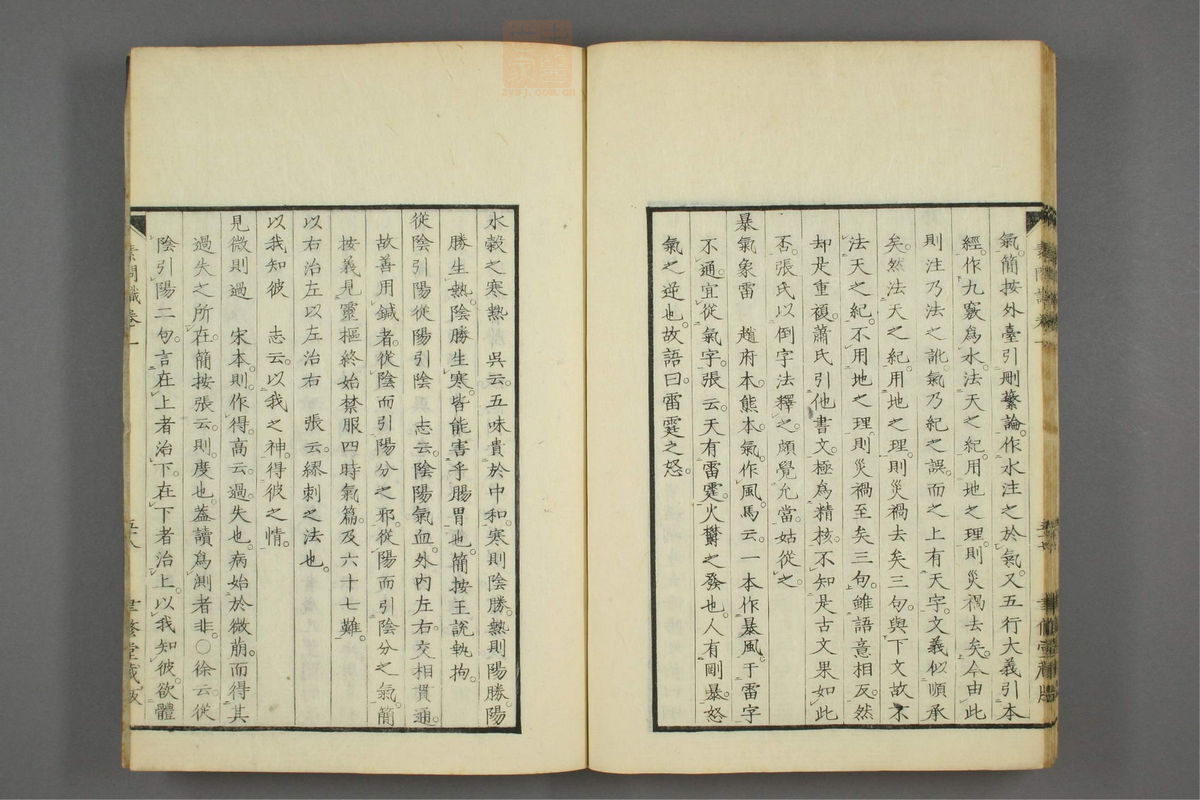 氣簡按外臺引刪繁論作水注之於氣又五行大義引本
經作九竅爲水法天之紀用地之理則災禍去矣今由此
則注乃法之訛氣乃紀之誤而之上有天字文義似順承
矣然法天之紀用地之理則災禍去矣三句與下文故不
法天之紀不用地之理則災禍至矣三句雖語意相反然
却是重複蕭氏引他書文極爲精核不知是古文果如此
否張氏以倒字法釋之頗覺允當姑從之
暴氣象雷 趙府本熊本氣作風馬云一本作暴風于雷字
不通宜從氣字張云天有雷霆火鬱之發也人有剛暴怒
氣之逆也故語曰雷霆之怒
水穀之寒熱 吳云五味貴於中和寒則陰勝熱則陽勝陽
勝生熱陰勝生寒皆能害乎腸胃也簡按王說執拘
從陰引陽從陽引陰 志云陰陽氣血外內左右交相貫通
故善用鍼者從陰而引陽分之邪從陽而引陰分之氣簡
按義見靈樞終始禁服四時氣篇及六十七難
以右治左以左治右 張云繆刺之法也
以我知彼 志云以我之神得彼之情
見微則過 宋本則作得高云過失也病始於微崩而得其
過失之所在簡按張云則度也蓋讀爲測者非○徐云從
陰引陽二句言在上者治下在下者治上以我知彼欲體
素問識卷一 五十八 聿修堂藏板